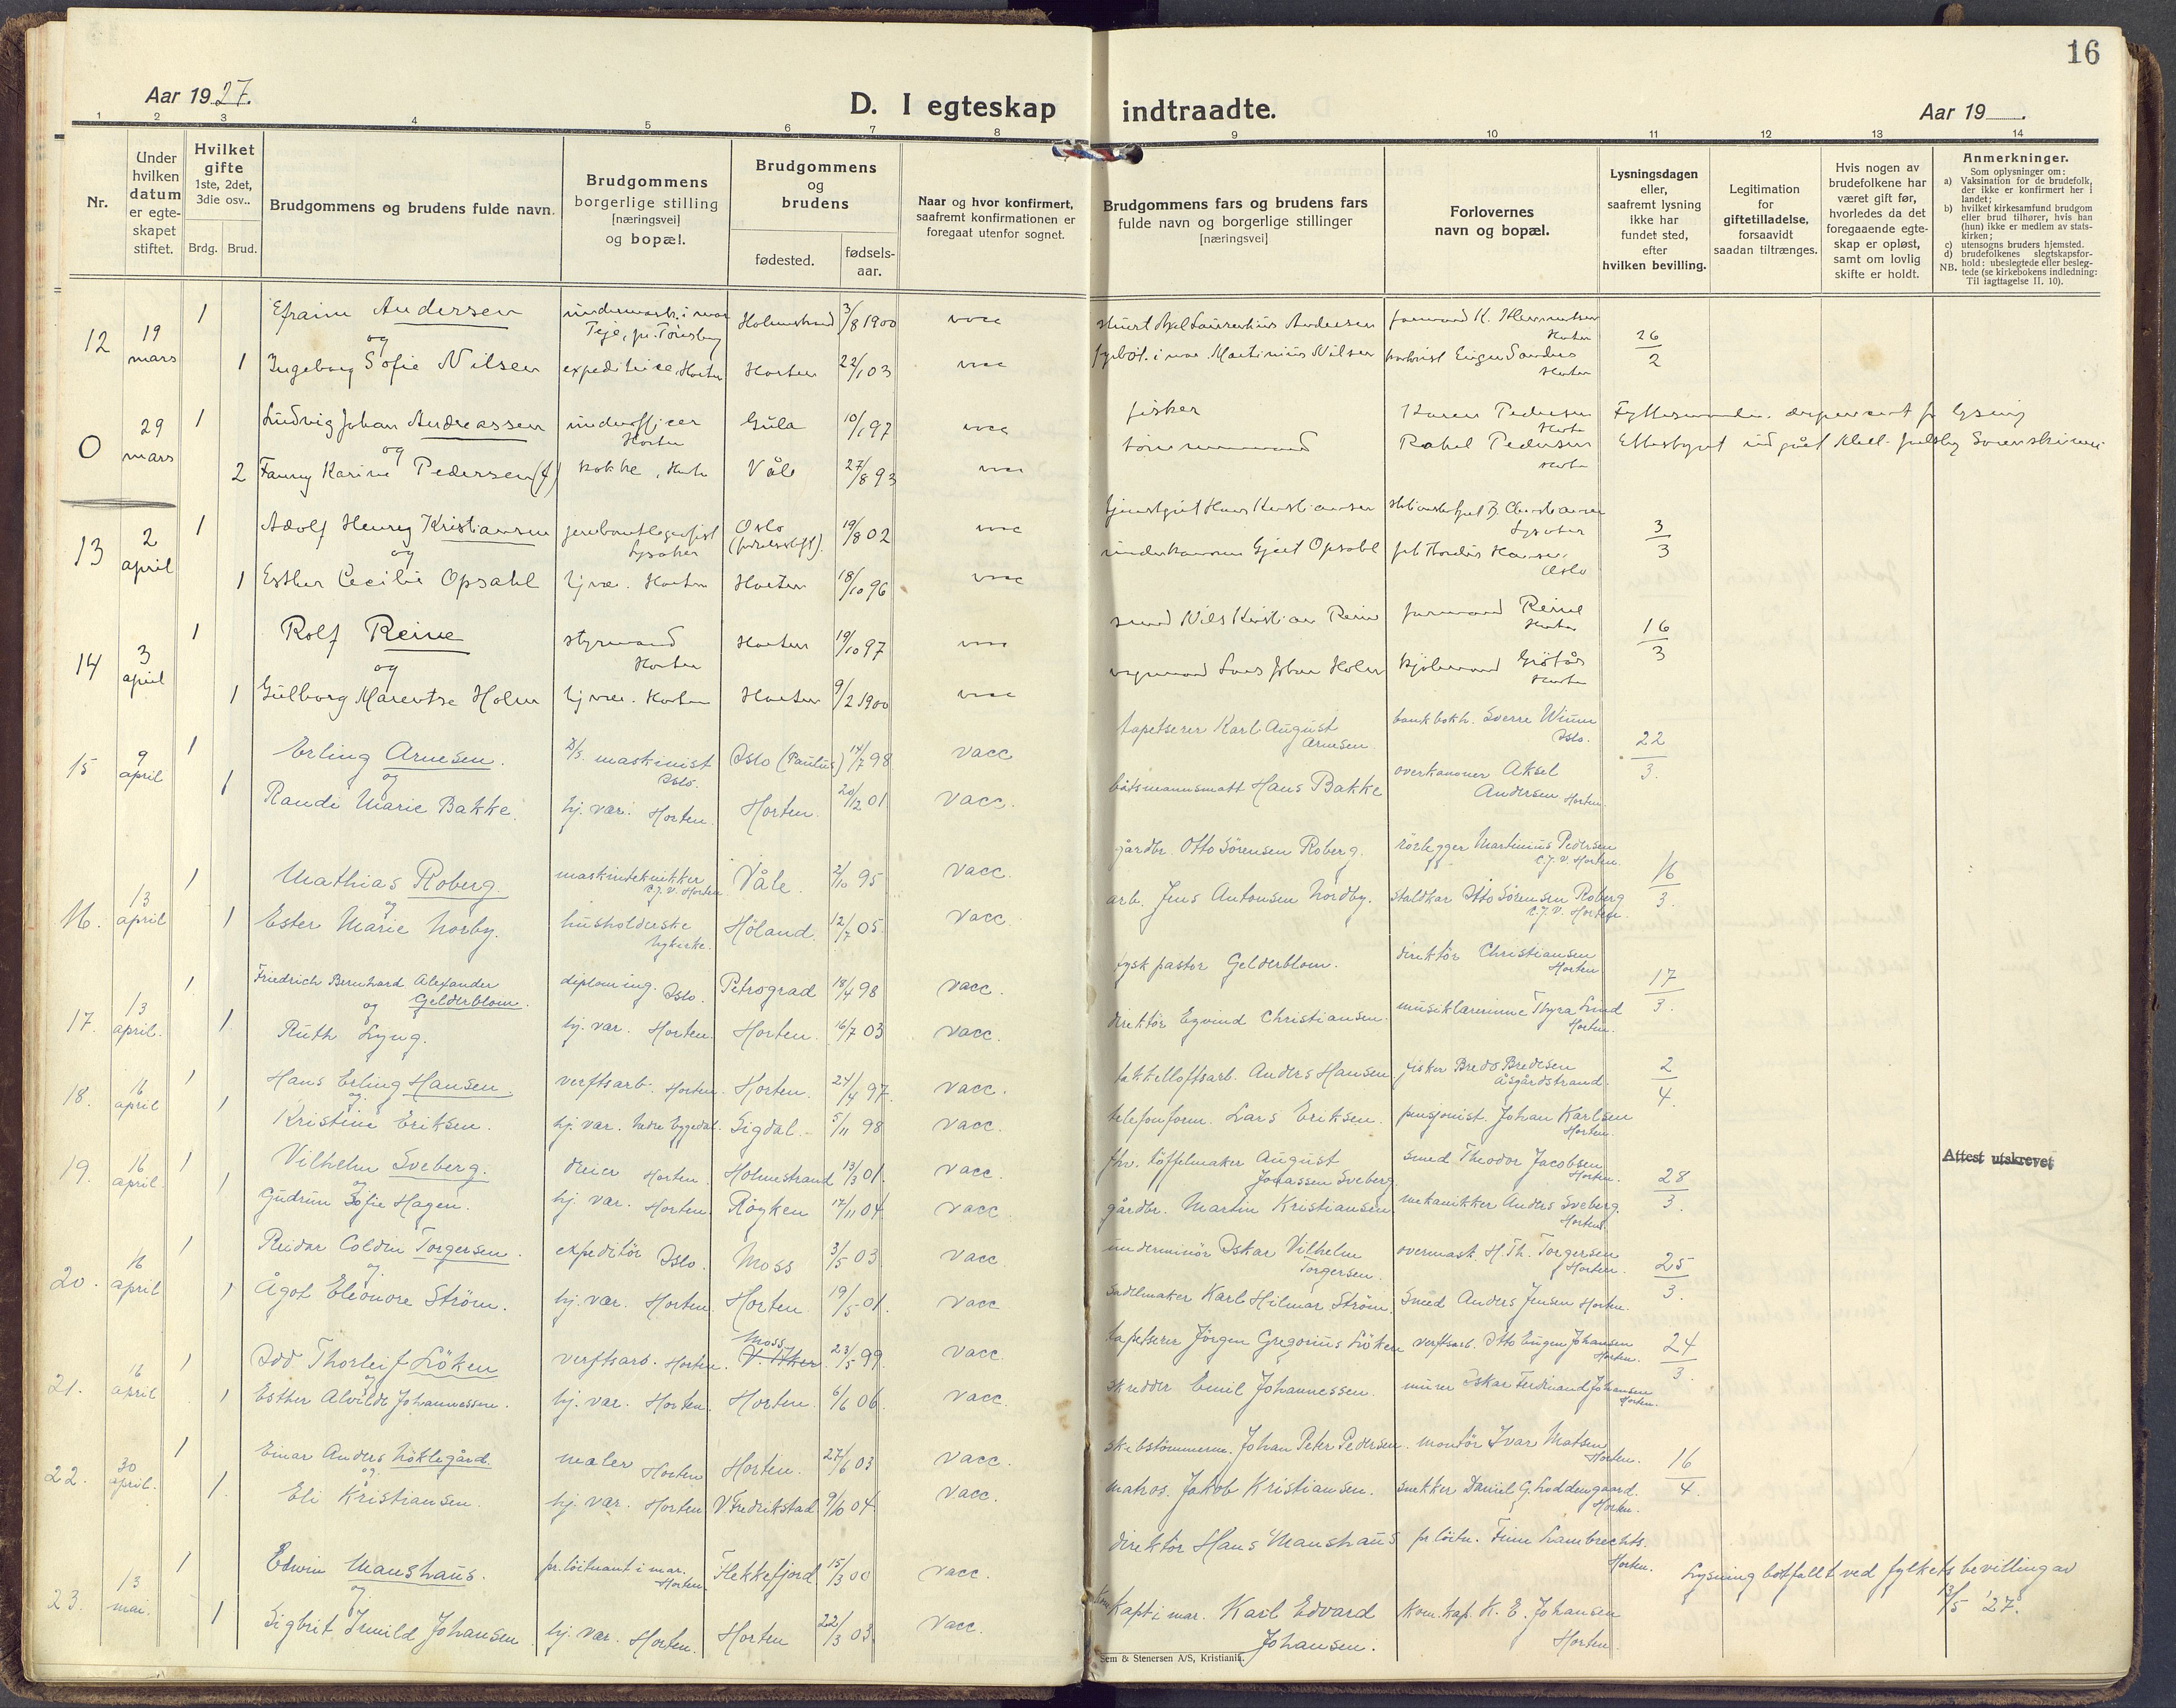 16
Aar 1927.
D. I egteskap indtraadte.
Aar 19
1 2 3 4 5 6 7 8 9 10 11 12 13 14
Nr.
Under hvilken datum er egte-skapet stiftet.
Hvilket gifte 1ste, 2det, 3die osv..
Brdg. Brud.
Brudgommens og brudens fulde navn.
Brudgommens borgerlige stilling [næringsvei] og bopæl.
Brudgommens og brudens
fødested.
fødsels-aar.
Naar og hvor konfirmert, saafremt konfirmationen er foregaat utenfor sognet.
Brudgommens fars og brudens fars fulde navn og borgerlige stillinger [næringsvei]
Forlovernes navn og bopæl.
Lysningsdagen eller, saafremt lysning ikke har fundet sted, efter hvilken bevilling.
Legitimation for giftetilladelse, forsaavidt saadan tiltrænges.
Hvis nogen av brudefolkene har været gift før, hvorledes da det foregaaende egte-skap er opløst, samt om lovlig skifte er holdt.
Anmerkninger.
Som oplysninger om:
a) Vaksination for de brudefolk, der ikke er konfirmert her i landet;
b) hvilket kirkesamfund brudgom eller brud tilhører, hvis han (hun) ikke er medlem av stats-kirken;
c) utensogns bruders hjemsted.
d) brudefolkenes slegtskapsfor-hold: ubeslegtede eller besleg-tede (se kirkebokens indledning: Til iagttagelse II. 10).
NB.
12 19 mars 1 Efraim Andersen Holmestrand 3/8 1900 vacc Axel Laurentius Andersen Horten 26/2
og
1 Ingeborg Sofie Nilsen expeditrice Horten Horten 22/1 03 vacc Martinius Nilsen Horten
0 29 mars 1 Ludvig Johan Andreassen underofficer Horten 10/1 97 vacc fisker Karen Pedersen Horten
og
2 Fanny Karine Pedersen (f) kokke, Horten Våle 27/8 93 vacc tømmermand Rakel Pedersen Horten
13 2 april 1 Adolf Henry Kristiansen Lysaker Oslo 19/8 02 vacc Hans Kristiansen Lysaker 3/3
og
1 Esther Cecilie Opsahl hj. vær. Horten Horten 18/10 96 vacc underkanoner Opsahl Oslo
14 3 april 1 Rolf Reine styrmand Horten Horten 19/10 97 vacc smed Nils Kristian Reine Reine Horten 16/3
og
1 Gulborg Marentse Holm hj. vær. Horten Horten 9/2 1900 vacc Lars Johan Holm Horten
15 9 april 1 Erling Arnesen. D/S. maskinist Oslo. Oslo (Paulus) 14/7 98 vacc tapetserer Karl August Arnesen bankbokh. Sverre Winn Oslo. 22/3.
og
1 Randi Marie Bakke. hj. vær. Horten. Horten. 20/2 01 vacc. båtsmannsmatt Hans Bakke overkanoner Aksel Andersen Horten.
16. 13 april 1 Mathias Roberg. maskintekniker C.J.V. Horten. Våle. 2/10 95 vacc. gårdbr. Otto Sörensen Roberg. rörlegger Martinius Pedersen C.J.V. Horten. 16/3.
og
1 Ester Marie Norby. husholderske Nykirke. Höland. 12/7 05. vacc. arb. Jens Antonsen Nordby. staldkar Otto Sörensen Roberg C.J.V. Horten.
17. 13 april. 1 Friedrich Bernhard Alexander Gelderblom. diplom ing. Oslo. Petrograd 18/4 98 vacc. tysk pastor Gelderblom. direktör Christiansen Horten 17/3.
og
1 Ruth Lyng. hj. vær. Horten. Horten. 16/7 03 vacc. direktör Eyvind Christiansen. musiklærerinne Thyra Lind Horten.
18. 16 april 1 Hans Erling Hansen verftsarb. Horten. Horten. 24/4 97. vacc. takkelloftsarb. Anders Hansen fisker Bredo Bredesen Åsgårdstrand. 2/4.
og
1 Kristine Eriksen. hj. vær. Nedre Eggedal. Sigdal. 5/11 98 vacc. telefonform. Lars Eriksen. pensjonist. Johan Karlsen Horten.
19. 16 april. 1 Vilhelm Sveberg. dreier Horten. Holmestrand 13/3 01. vacc. fhv. töffelmaker August Jonassen Sveberg. smed Theodor Jacobsen Horten. 28/3. Attest utskrevet
og
1 Gudrun Sofie Hagen. hj. vær. Horten. Röyken 14/11 04 vacc. gårdbr. Martin Kristiansen mekanikker Anders Sveberg. Horten.
20. 16 april 1 Reidar Coldin Torgersen. expeditör Oslo. Moss 3/5 03 vacc. underminör Oskar Vilhelm Torgersen. overmask. H. Th. Torgersen Horten. 25/3.
og.
1 Ågot Eleonore Ström. hj. vær. Horten. Horten. 19/5 01. vacc. sadelmaker Karl Hilmar Ström. Smed Anders Jensen Horten.
21. 16 april 1 Odd Thorleif Löken verftsarb. Horten. Moss V. Aker 23/5 99 vacc. tapetserer Jörgen Gregorius Löken verftsarb. Otto Eugen Johansen Horten. 24/3.
og
1 Esther Alvilde Johannessen. hj. vær. Horten. Horten. 6/6 06. vacc. skredder Emil Johannessen. murer Oskar Ferdinand Johansen Horten.
22. 30 april. 1 Einar Anders Nöklegård. maler Horten Horten. 27/6 03 vacc. skibstömmerm. Johan Peter Pedersen. montör Ivar Matsen Horten. 16/4.
og.
1. Eli Kristiansen. hj. vær. Horten V. Fredrikstad 9/10 04. vacc. matros. Jakob Kristiansen. snekker Daniel G. Loddengaard. Horten.
23. 13 mai. 1 Edwin Manshaus. pr. löitnant i mar. Horten. Flekkefjord 15/3 00 vacc. direktör Hans Manshaus pr. löitn. Finn Lambrechts. Horten. Lysning bortfallt ved fylkets bevilling av 13/5 '27.
og.
1 Sigbrit Irmild Johansen hj. vær. Horten. Horten 22/3 03. vacc. Kapt. i mar. Karl Edvard Johansen. Kom. kap. K. E. Johansen Horten.
Sem & Stenersen A/S, Kristiania.